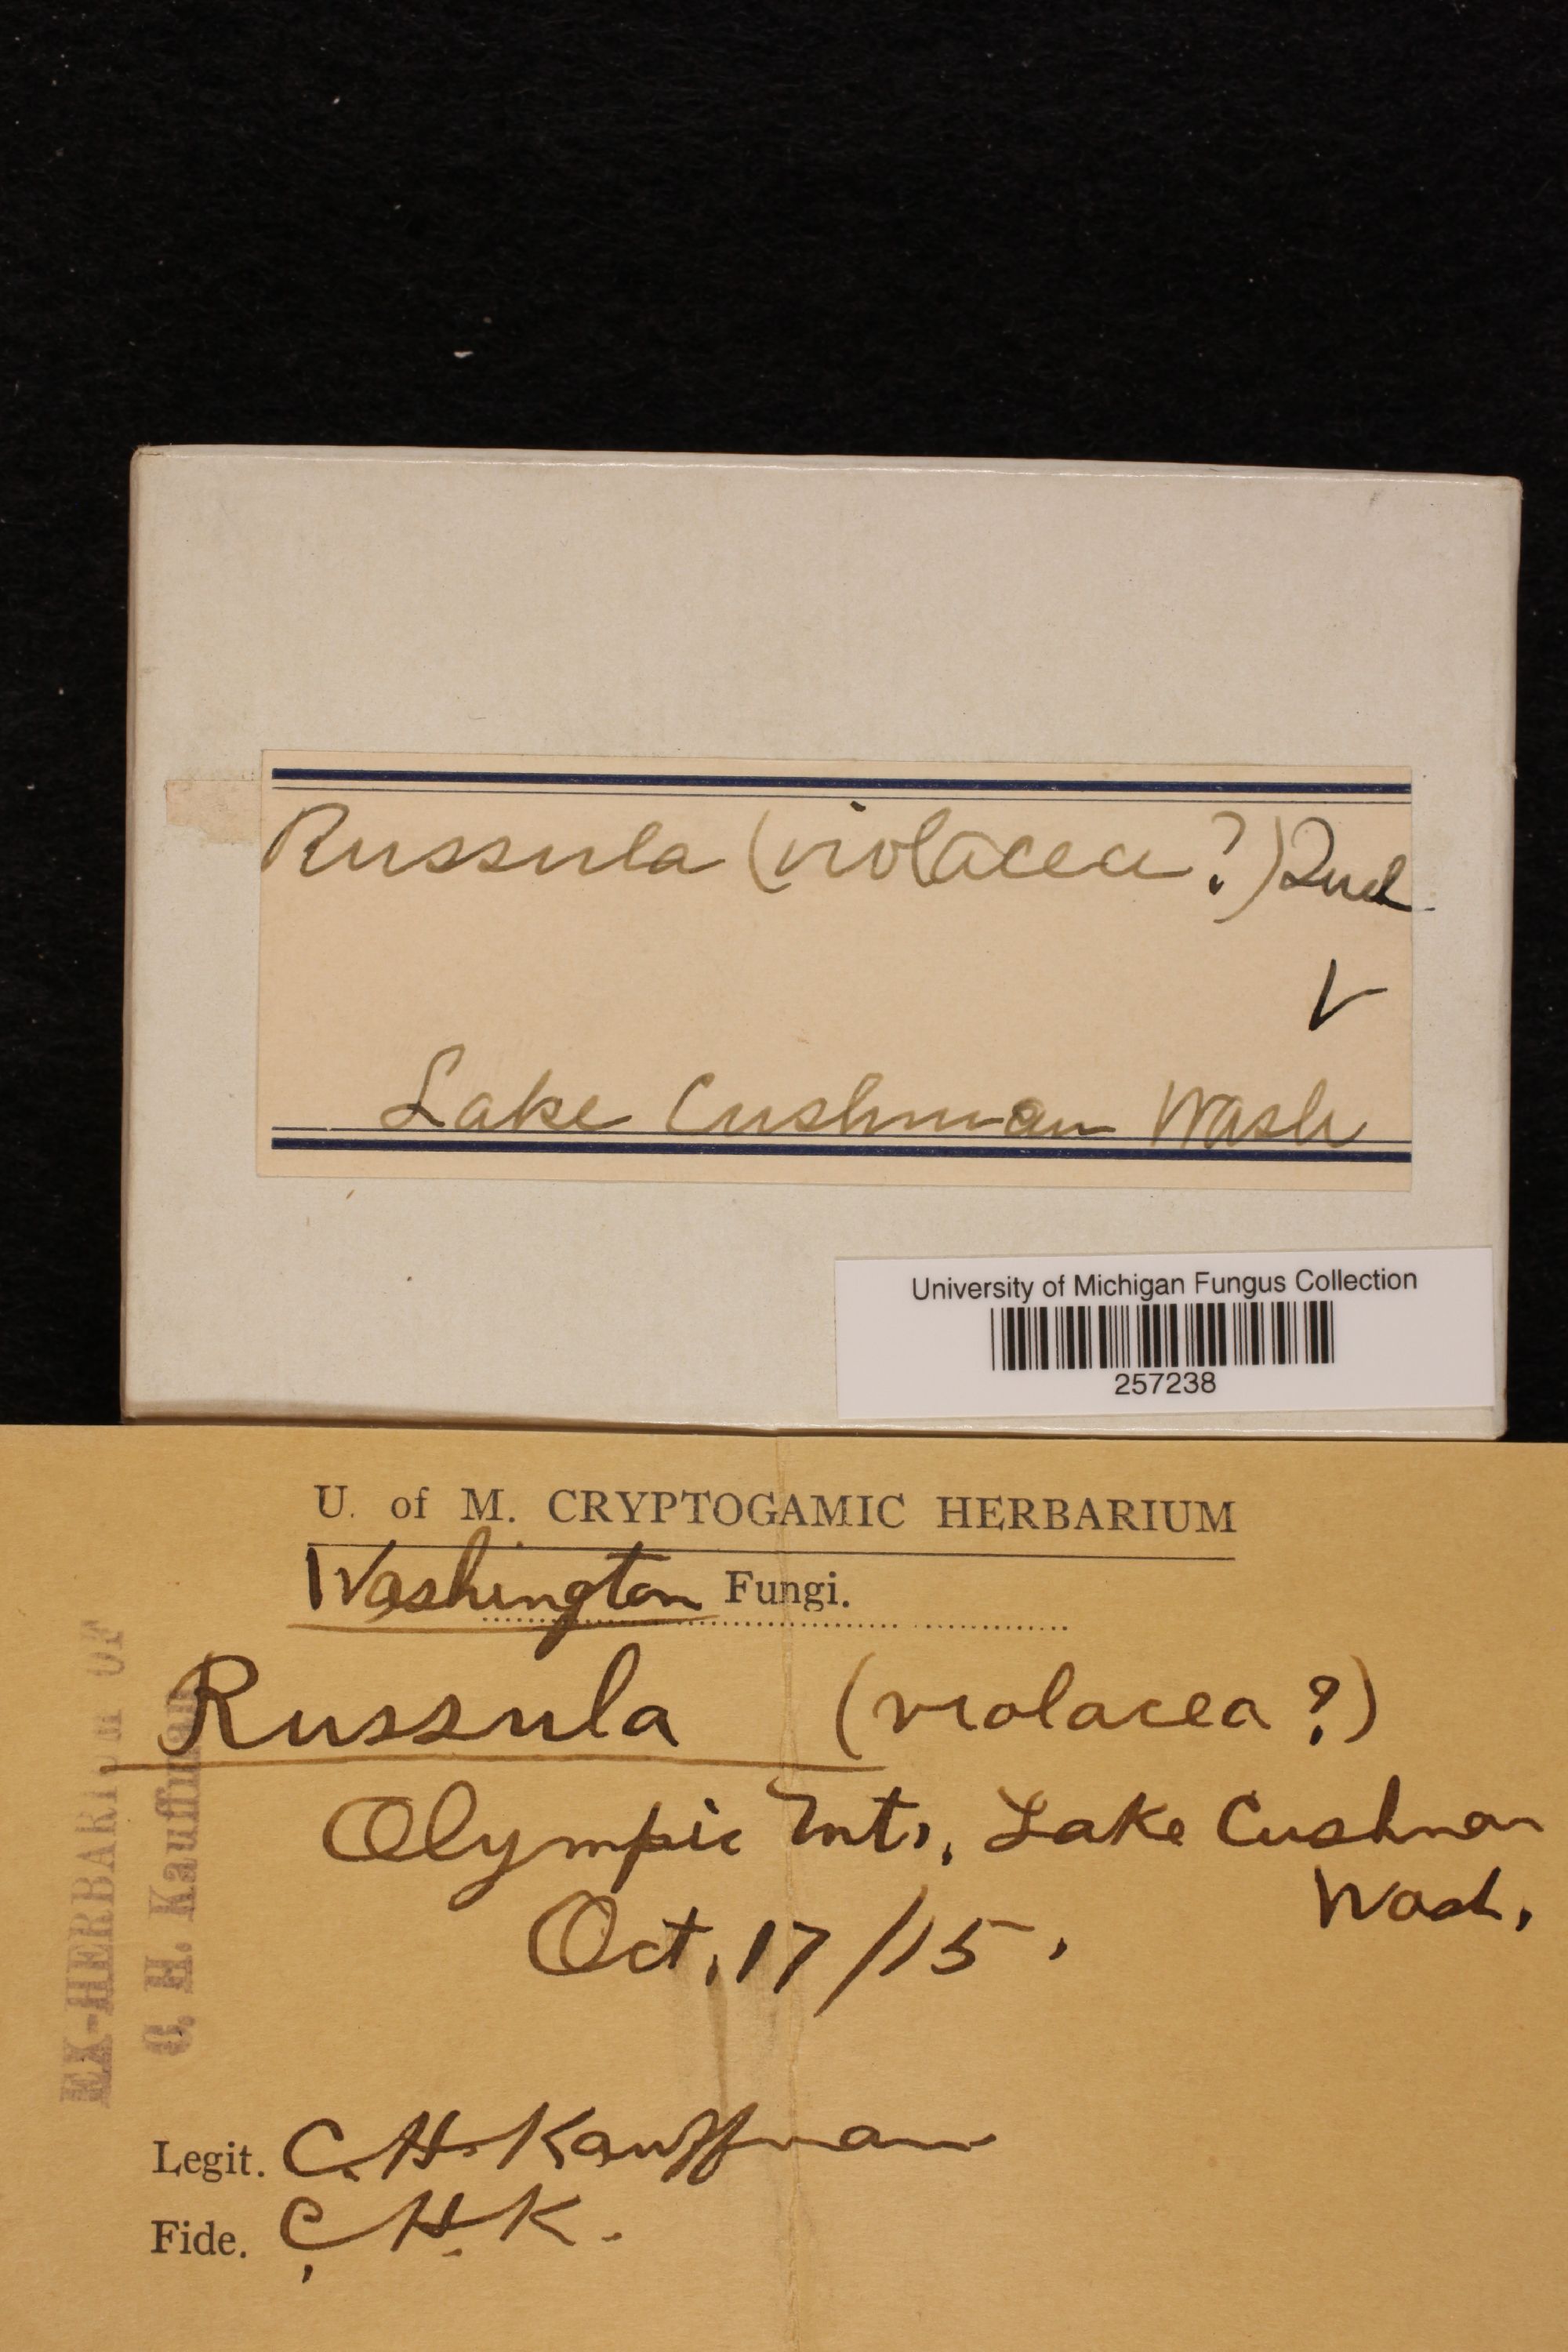 Russula (violacea?) 2nd
V
Lake Cushman Wash
University of Michigan Fungus Collection
257238
U. of M. CRYPTOGAMIC HERBARIUM
Washington Fungi.
Russula (violacea?)
Olympic Mts., Lake Cushman
Wash.
Oct. 17/15.
EX-HERBARIUM OF
C. H. Kauffman
Legit. C. H. Kauffman
Fide. C. H. K.